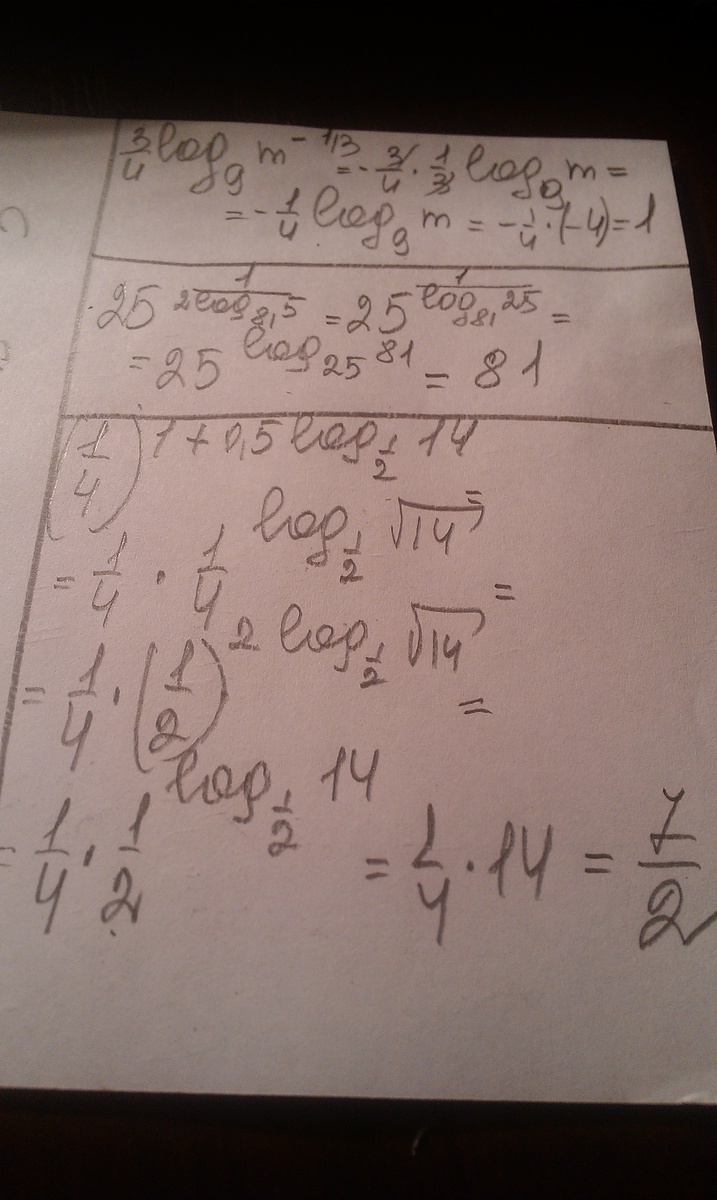 3/4 log₉ m^(-1/3) = -3/4 · 1/3 log₉ m =
= -1/4 log₉ m = -1/4 · (-4) = 1
25^(1/(2log₈₁ 5)) = 25^(1/(log₈₁ 25)) =
= 25^(log₂₅ 81) = 81
(1/4)^(1+0,5 log_(1/2) 14) =
= 1/4 · 1/4^(log_(1/2) √14) =
= 1/4 · (1/2)^(2 log_(1/2) √14) =
= 1/4 · 1/2^(log_(1/2) 14) = 1/4 · 14 = 7/2